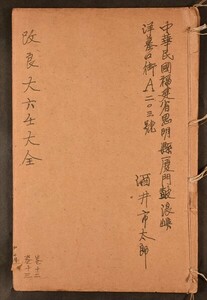 中華民國福建省思明縣廈門鼓浪嶼
洋墓口街A二〇三號
酒井市太郎
改良大六壬大全
卷十二
卷十三